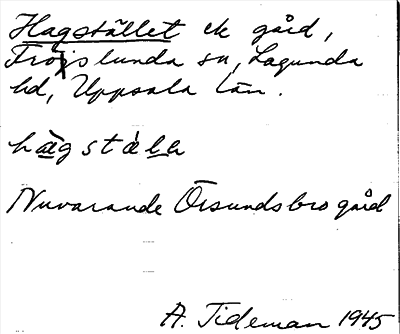 Hagstället ek gård,
Fröjslunda sn, Lagunda
hd, Uppsala län.
Nuvarande Örsundsbro gård
A. Tideman 1945